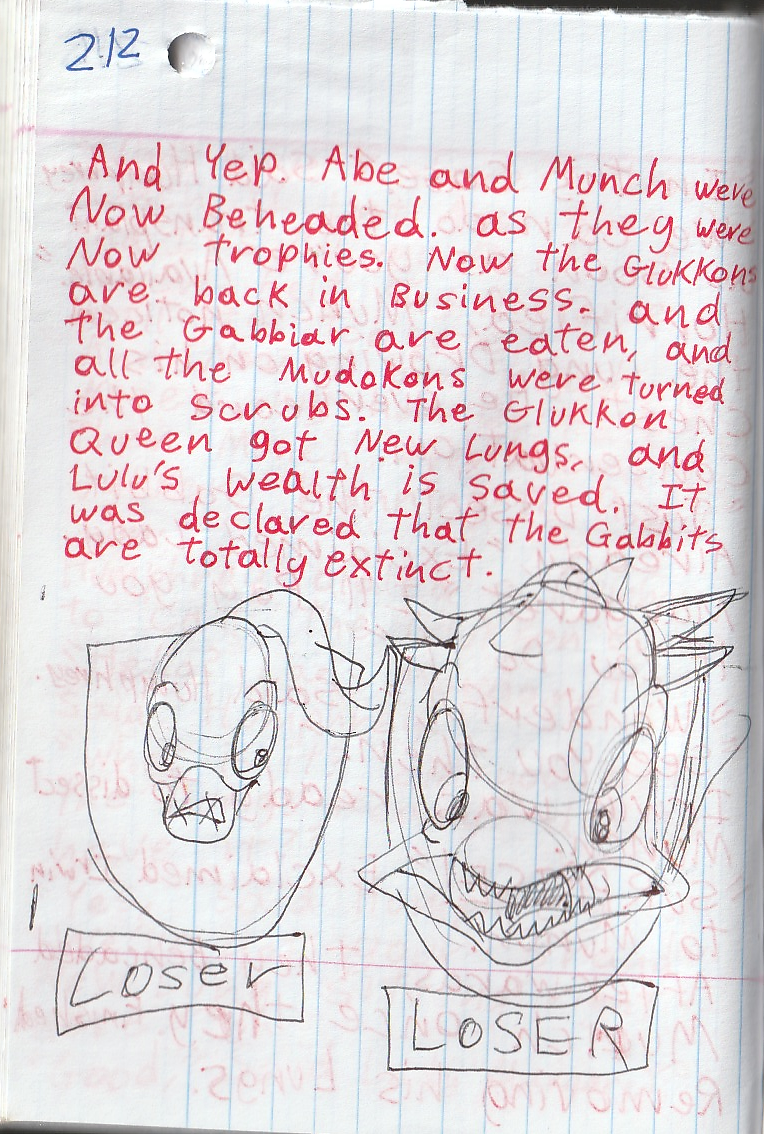 212
And Yep. Abe and Munch were
Now Beheaded. as they were
Now trophies. Now the Glukkons
are back in Business. and
the Gabbiar are eaten, and
all the Mudokons were turned
into Scrubs. The Glukkon
Queen got New Lungs, and
Lulu's wealth is saved. It
was declared that the Gabbits
are totally extinct.
Loser
LOSER